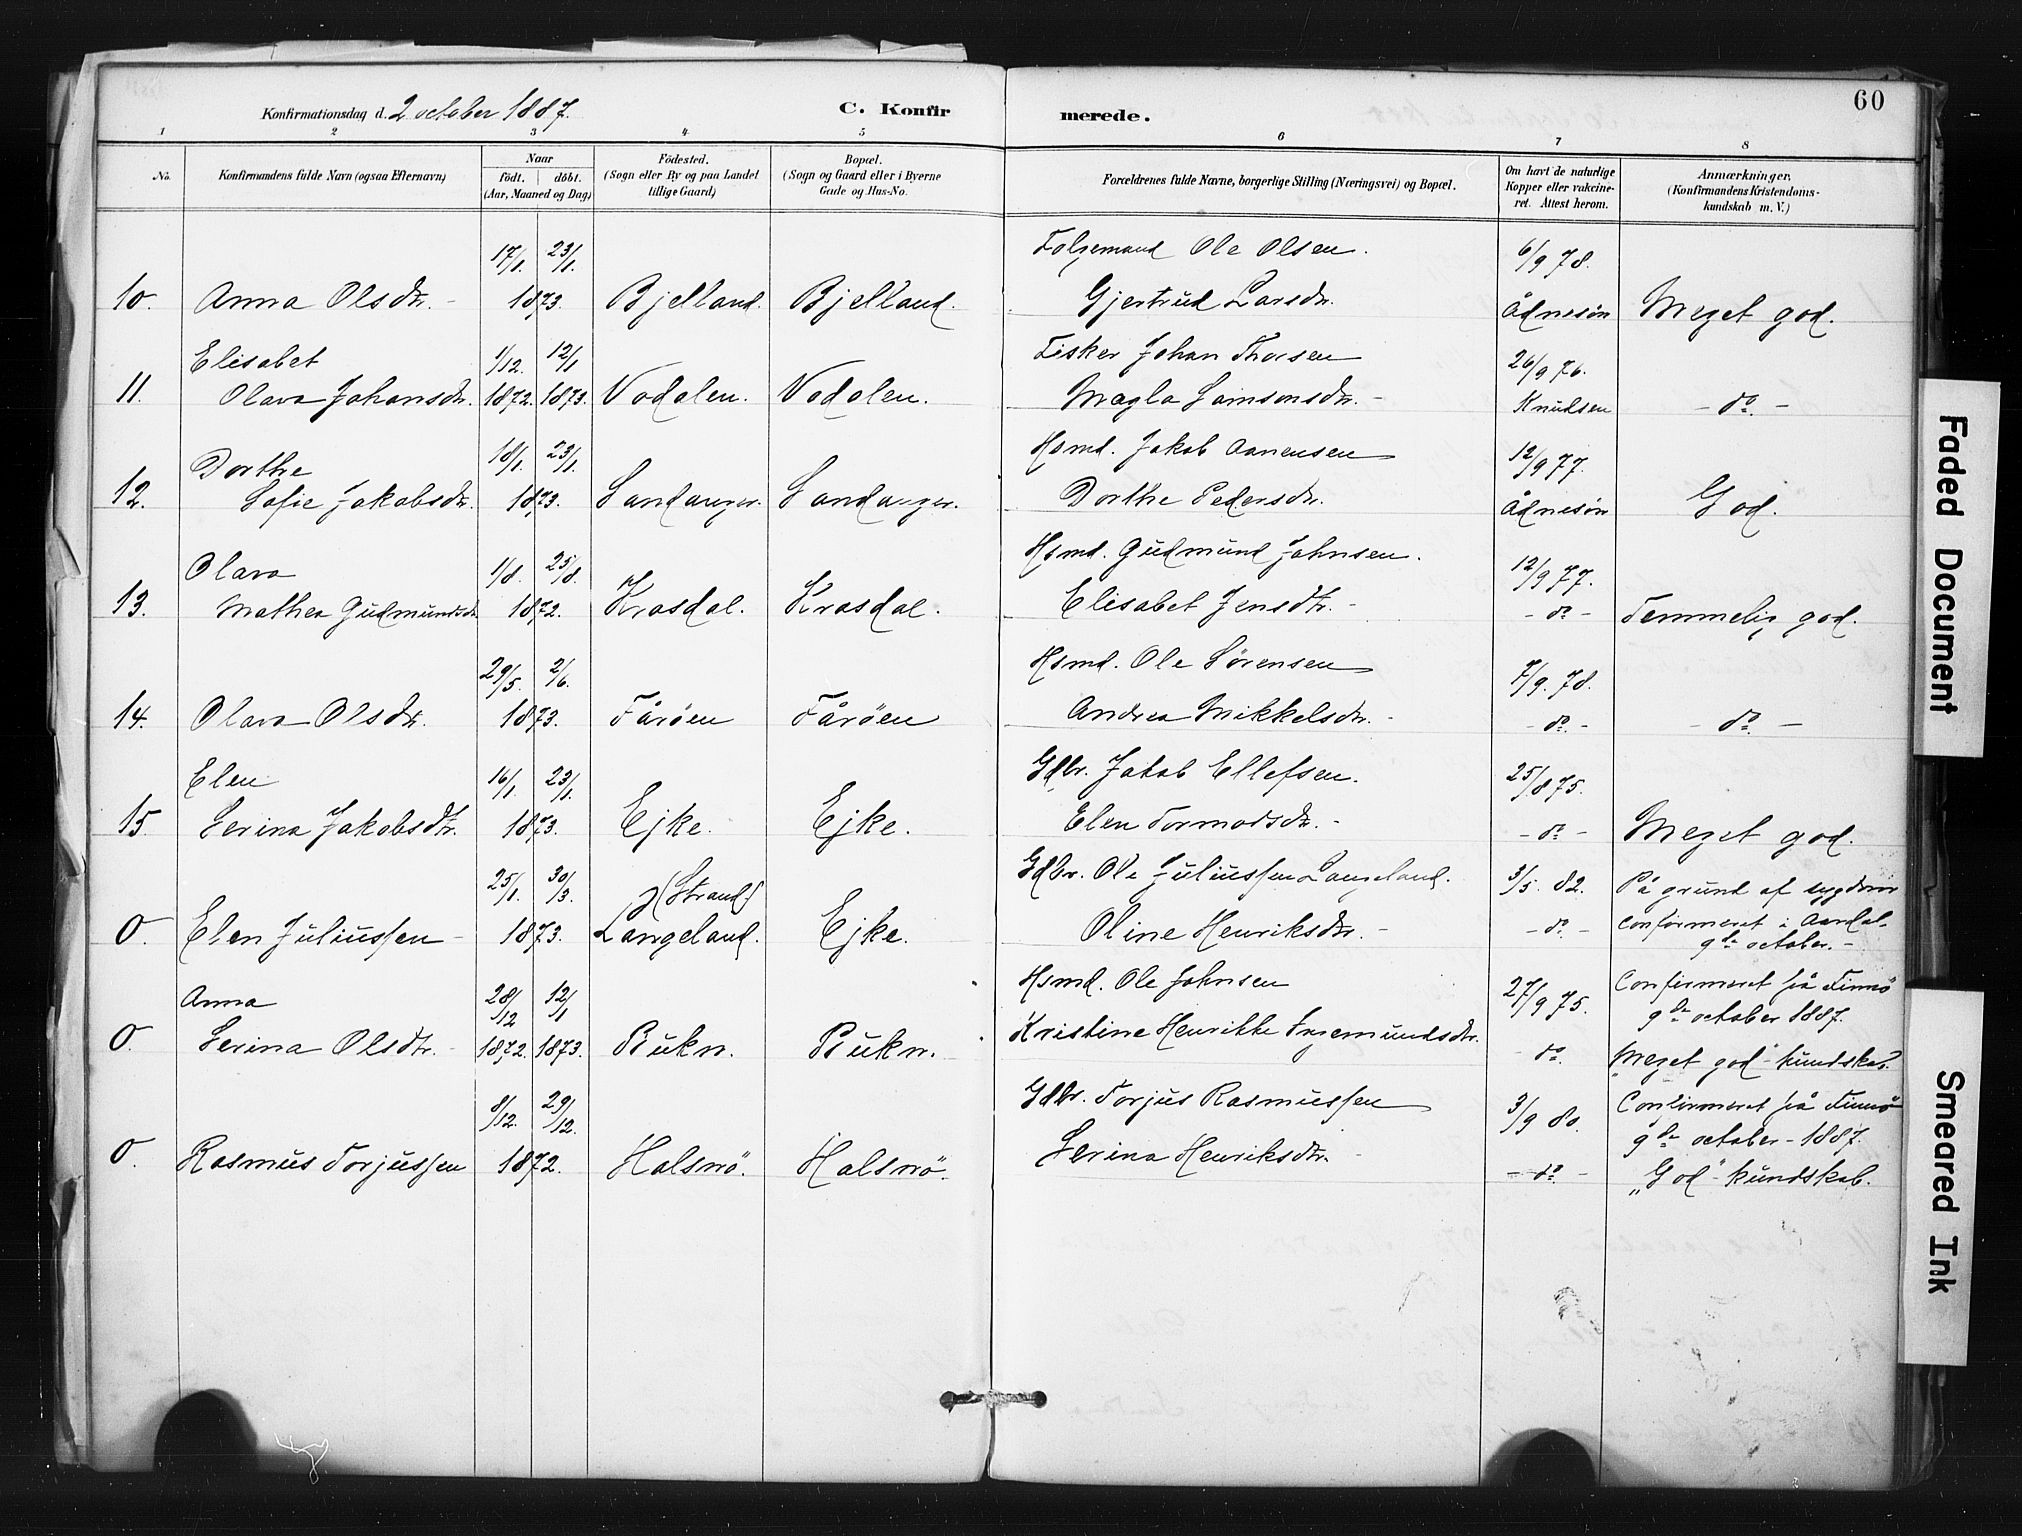 60
Konfirmationsdag d. 2 october 1887.
C. Konfirmerede.
1 2 3 4 5 6 7 8
No.
Konfirmandens fulde Navn (ogsaa Efternavn)
Naar
födt. döbt.
(Aar, Maaned og Dag)
Födested.
(Sogn eller By og paa Landet
tillige Gaard)
Bopæl.
(Sogn og Gaard eller i Byerne
Gade og Hus-No.
Forældrenes fulde Navne, borgerlige Stilling (Næringsvei) og Bopæl.
Om havt de naturlige
Kopper eller vakcine-
ret. Attest herom.
Anmærkninger,
(Konfirmandens Kristendoms-
kundskab m. V.)
17/1. 23/1. Folgemand Ole Olsen. 6/9 78.
10. Anna Olsdr. 1873. Bjelland. Bjelland. Gjertrud Larsdr. Ådnesön Meget god.
Elisabet 1/12. 12/1 Fisker Johan Thorsen 26/9 76.
11. Olava Johansdr. 1872. 1873. Vadalen. Vadalen. Magla Samsonsdr. - Knudsen - do. -
Dorthe 18/1. 23/1. Hsmd. Jakob Aanensen 12/9 77.
12. Sofie Jakobsdr. 1873. Sandanger. Sandanger. Dorthe Pedersdr. Ådnesön God.
Olava 1/8. 25/8. Hsmd. Gudmund Johnsen. 12/9 77.
13. Mathea Gudmundsdr. 1872. Krosdal. Krosdal. Elisabet Jensdtr. - - do - Temmelig god.
29/5. 2/6. Hsmd. Ole Sörensen 7/9. 78.
14. Olava Olsdtr. 1873. Fåröen Fåröen Andrea Mikkelsdr. - - do. - - do. -
Elen 16/1. 23/1. Gdbr. Jakob Ellefsen. 25/8 75.
15. Serina Jakobsdtr. 1873. Ejke. Ejke. Elen Tormodsdr. - - do - Meget god.
25/1. 30/3. (Strand) Gdbr. Ole Juliussen Langeland. 3/5. 82. På grund af sygdom
0. Elen Juliussen 1873. Langeland. Ejke. Oline Henriksdtr. - - do. - confirmeret i Aardal
9de october. -
Anna 28/12 12/1 Hsmd. Ole Johnsen 27/9 75. Confirmeret på Finnö
9de october 1887.
0. Serina Olsdtr. 1872. 1873. Bukn. Bukn. Kristine Henrikke Ingemundsdr. - do. "Meget god" kundskab.
8/12. 29/12. Gdbr. Torjus Rasmussen 3/9 80. Confirmeret på Finnö
9de october - 1887.
0. Rasmus Torjussen 1872. Halsnö. Halsnö. Serina Henriksdtr. - - do. - "God" kundskab.
Faded Document
Smeared Ink